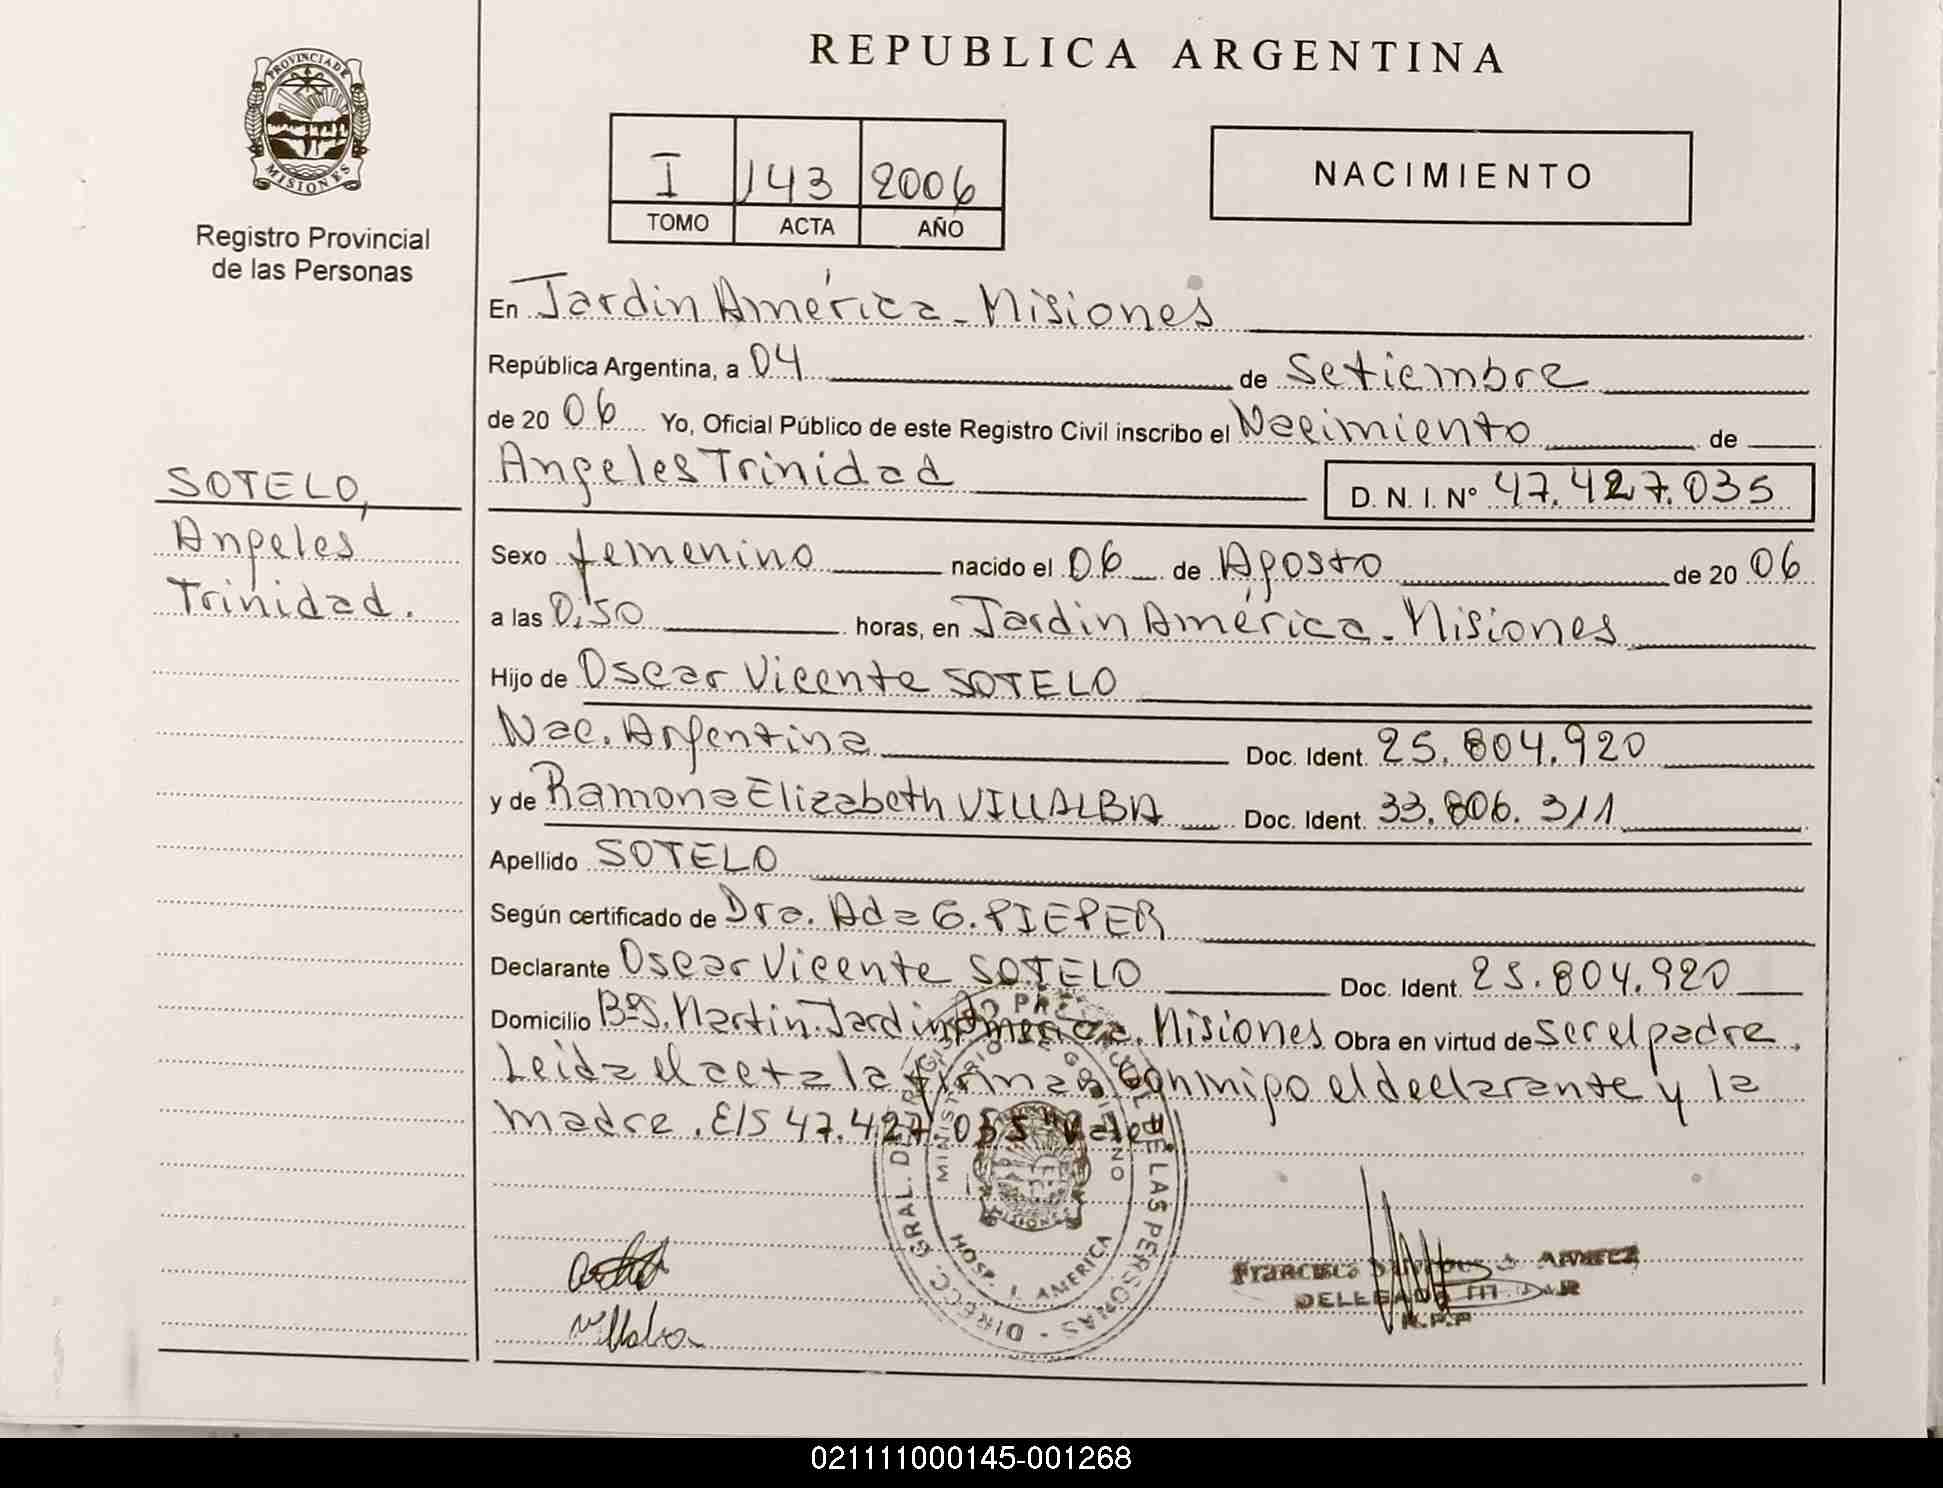 PROVINCIA DE
MISIONES
Registro Provincial
de las Personas
SOTELO,
Angeles
Trinidad.
REPUBLICA ARGENTINA
I 143 2006
TOMO ACTA AÑO
NACIMIENTO
En Jardin América - Misiones
República Argentina, a 04 de Setiembre
de 20 06 Yo, Oficial Público de este Registro Civil inscribo el Nacimiento de
Angeles Trinidad D. N. I. N° 47.427.035
Sexo femenino nacido el 06 de Agosto de 20 06
a las 0,50 horas, en Jardin América - Misiones
Hijo de Oscar Vicente SOTELO
Nac. Argentina Doc. Ident. 25.804.920
y de Ramona Elizabeth VILLALBA Doc. Ident. 33.806.311
Apellido SOTELO
Según certificado de Dra. Ada G. PIEPER
Declarante Oscar Vicente SOTELO Doc. Ident. 25.804.920
Domicilio Bº S. Martin. Jardin América. Misiones Obra en virtud de ser el padre.
Leida el acta la firman conmigo el declarante y la
madre. E/S 47.427.035 "Vale"
DIRECC. GRAL. DE REGISTRO PROVINCIAL DE LAS PERSONAS
MINISTERIO DE GOBIERNO
HOSP. J. AMERICA
MISIONES
Villalba
Francisca
DELEGADA
R.P.P
021111000145-001268